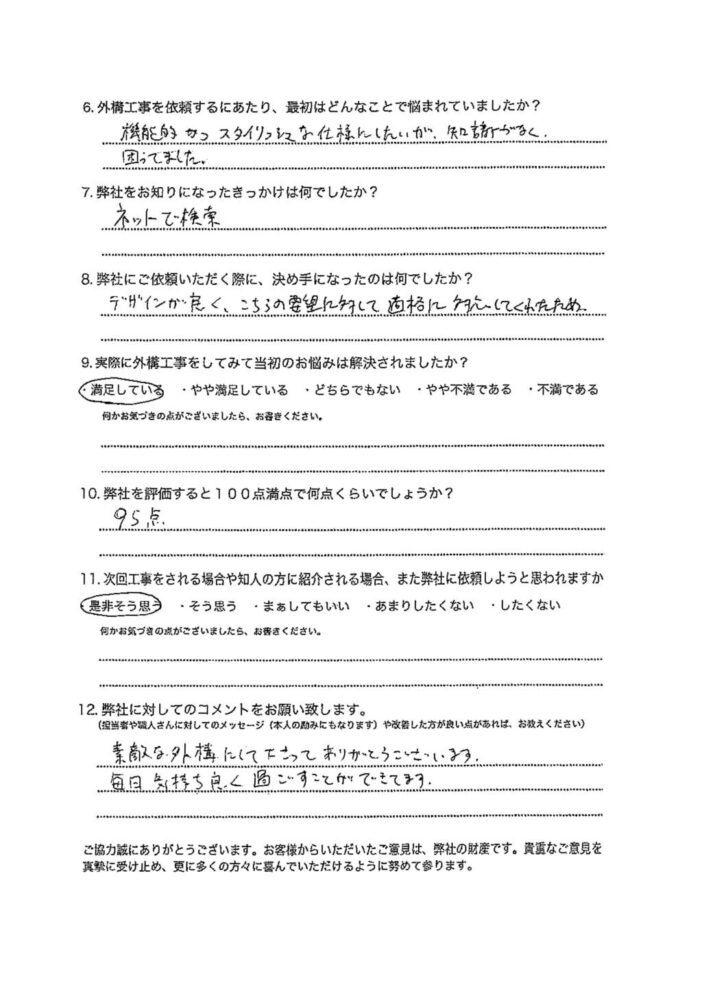 6. 外構工事を依頼するにあたり、最初はどんなことで悩まれていましたか？
機能的かつスタイリッシュな仕様にしたいが、知識がなく、
困ってました。
7. 弊社をお知りになったきっかけは何でしたか？
ネットで検索
8. 弊社にご依頼いただく際に、決め手になったのは何でしたか？
デザインが良く、こちらの要望に対して適格に対応してくれたため。
9. 実際に外構工事をしてみて当初のお悩みは解決されましたか？
・満足している ・やや満足している ・どちらでもない ・やや不満である ・不満である
何かお気づきの点がございましたら、お書きください。
10. 弊社を評価すると１００点満点で何点くらいでしょうか？
95点
11. 次回工事をされる場合や知人の方に紹介される場合、また弊社に依頼しようと思われますか
・是非そう思う ・そう思う ・まぁしてもいい ・あまりしたくない ・したくない
何かお気づきの点がございましたら、お書きください。
12. 弊社に対してのコメントをお願い致します。
（担当者や職人さんに対してのメッセージ（本人の励みにもなります）や改善した方が良い点があれば、お教えください）
素敵な外構にして下さってありがとうございます。
毎日気持ち良く過ごすことができてます。
ご協力誠にありがとうございます。お客様からいただいたご意見は、弊社の財産です。貴重なご意見を
真摯に受け止め、更に多くの方々に喜んでいただけるように努めて参ります。